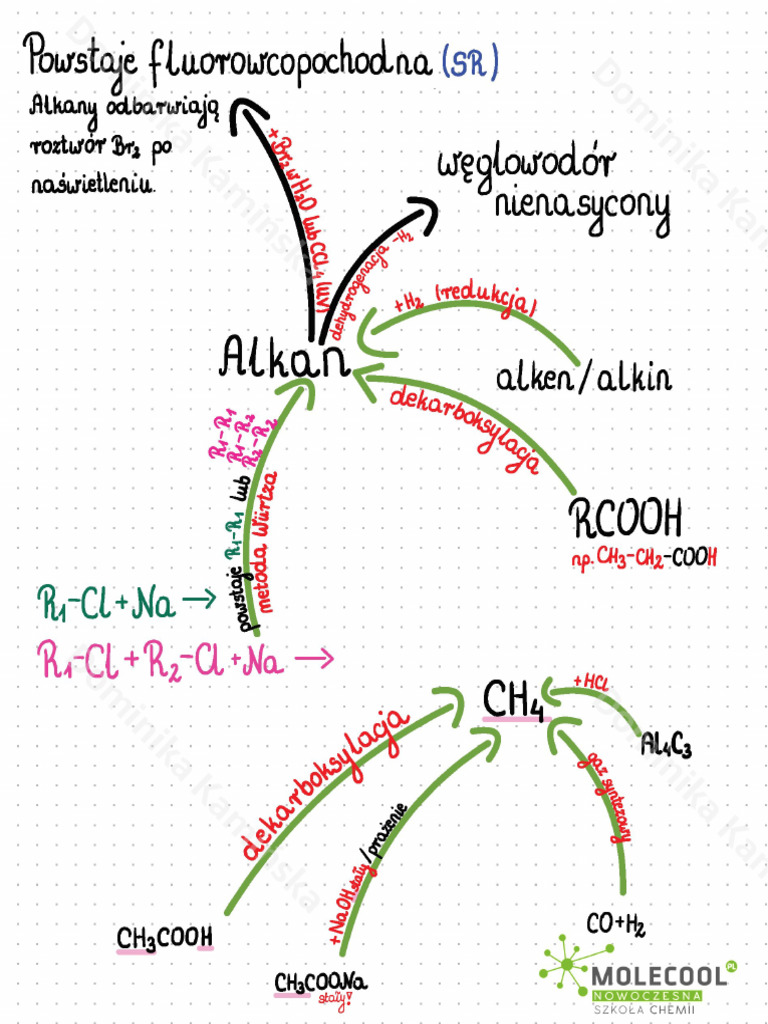 Powstaje fluorowcopochodna (SR)
Alkany odbarwiają
roztwór Br2 po
naświetleniu.
+Br2 w H2O lub CCl4 (UV)
węglowodór
nienasycony
dehydrogenacja -H2
+H2 (redukcja)
Alkan
alken/alkin
dekarboksylacja
RCOOH
np. CH3-CH2-COOH
R1-R1
R1-R2
R2-R2
powstaje R1-R1 lub
metoda Würtza
R1-Cl+Na →
R1-Cl+R2-Cl+Na →
CH4
+HCl
Al4C3
dekarboksylacja
+NaOH stały/prażenie
gaz syntezowy
CH3COOH
CH3COONa
stały!
CO+H2
MOLECOOL PL
NOWOCZESNA
SZKOŁA CHEMII
Dominika Kamińska
Dominika Kamińska
Dominika Kamińska
Dominika Kamińska